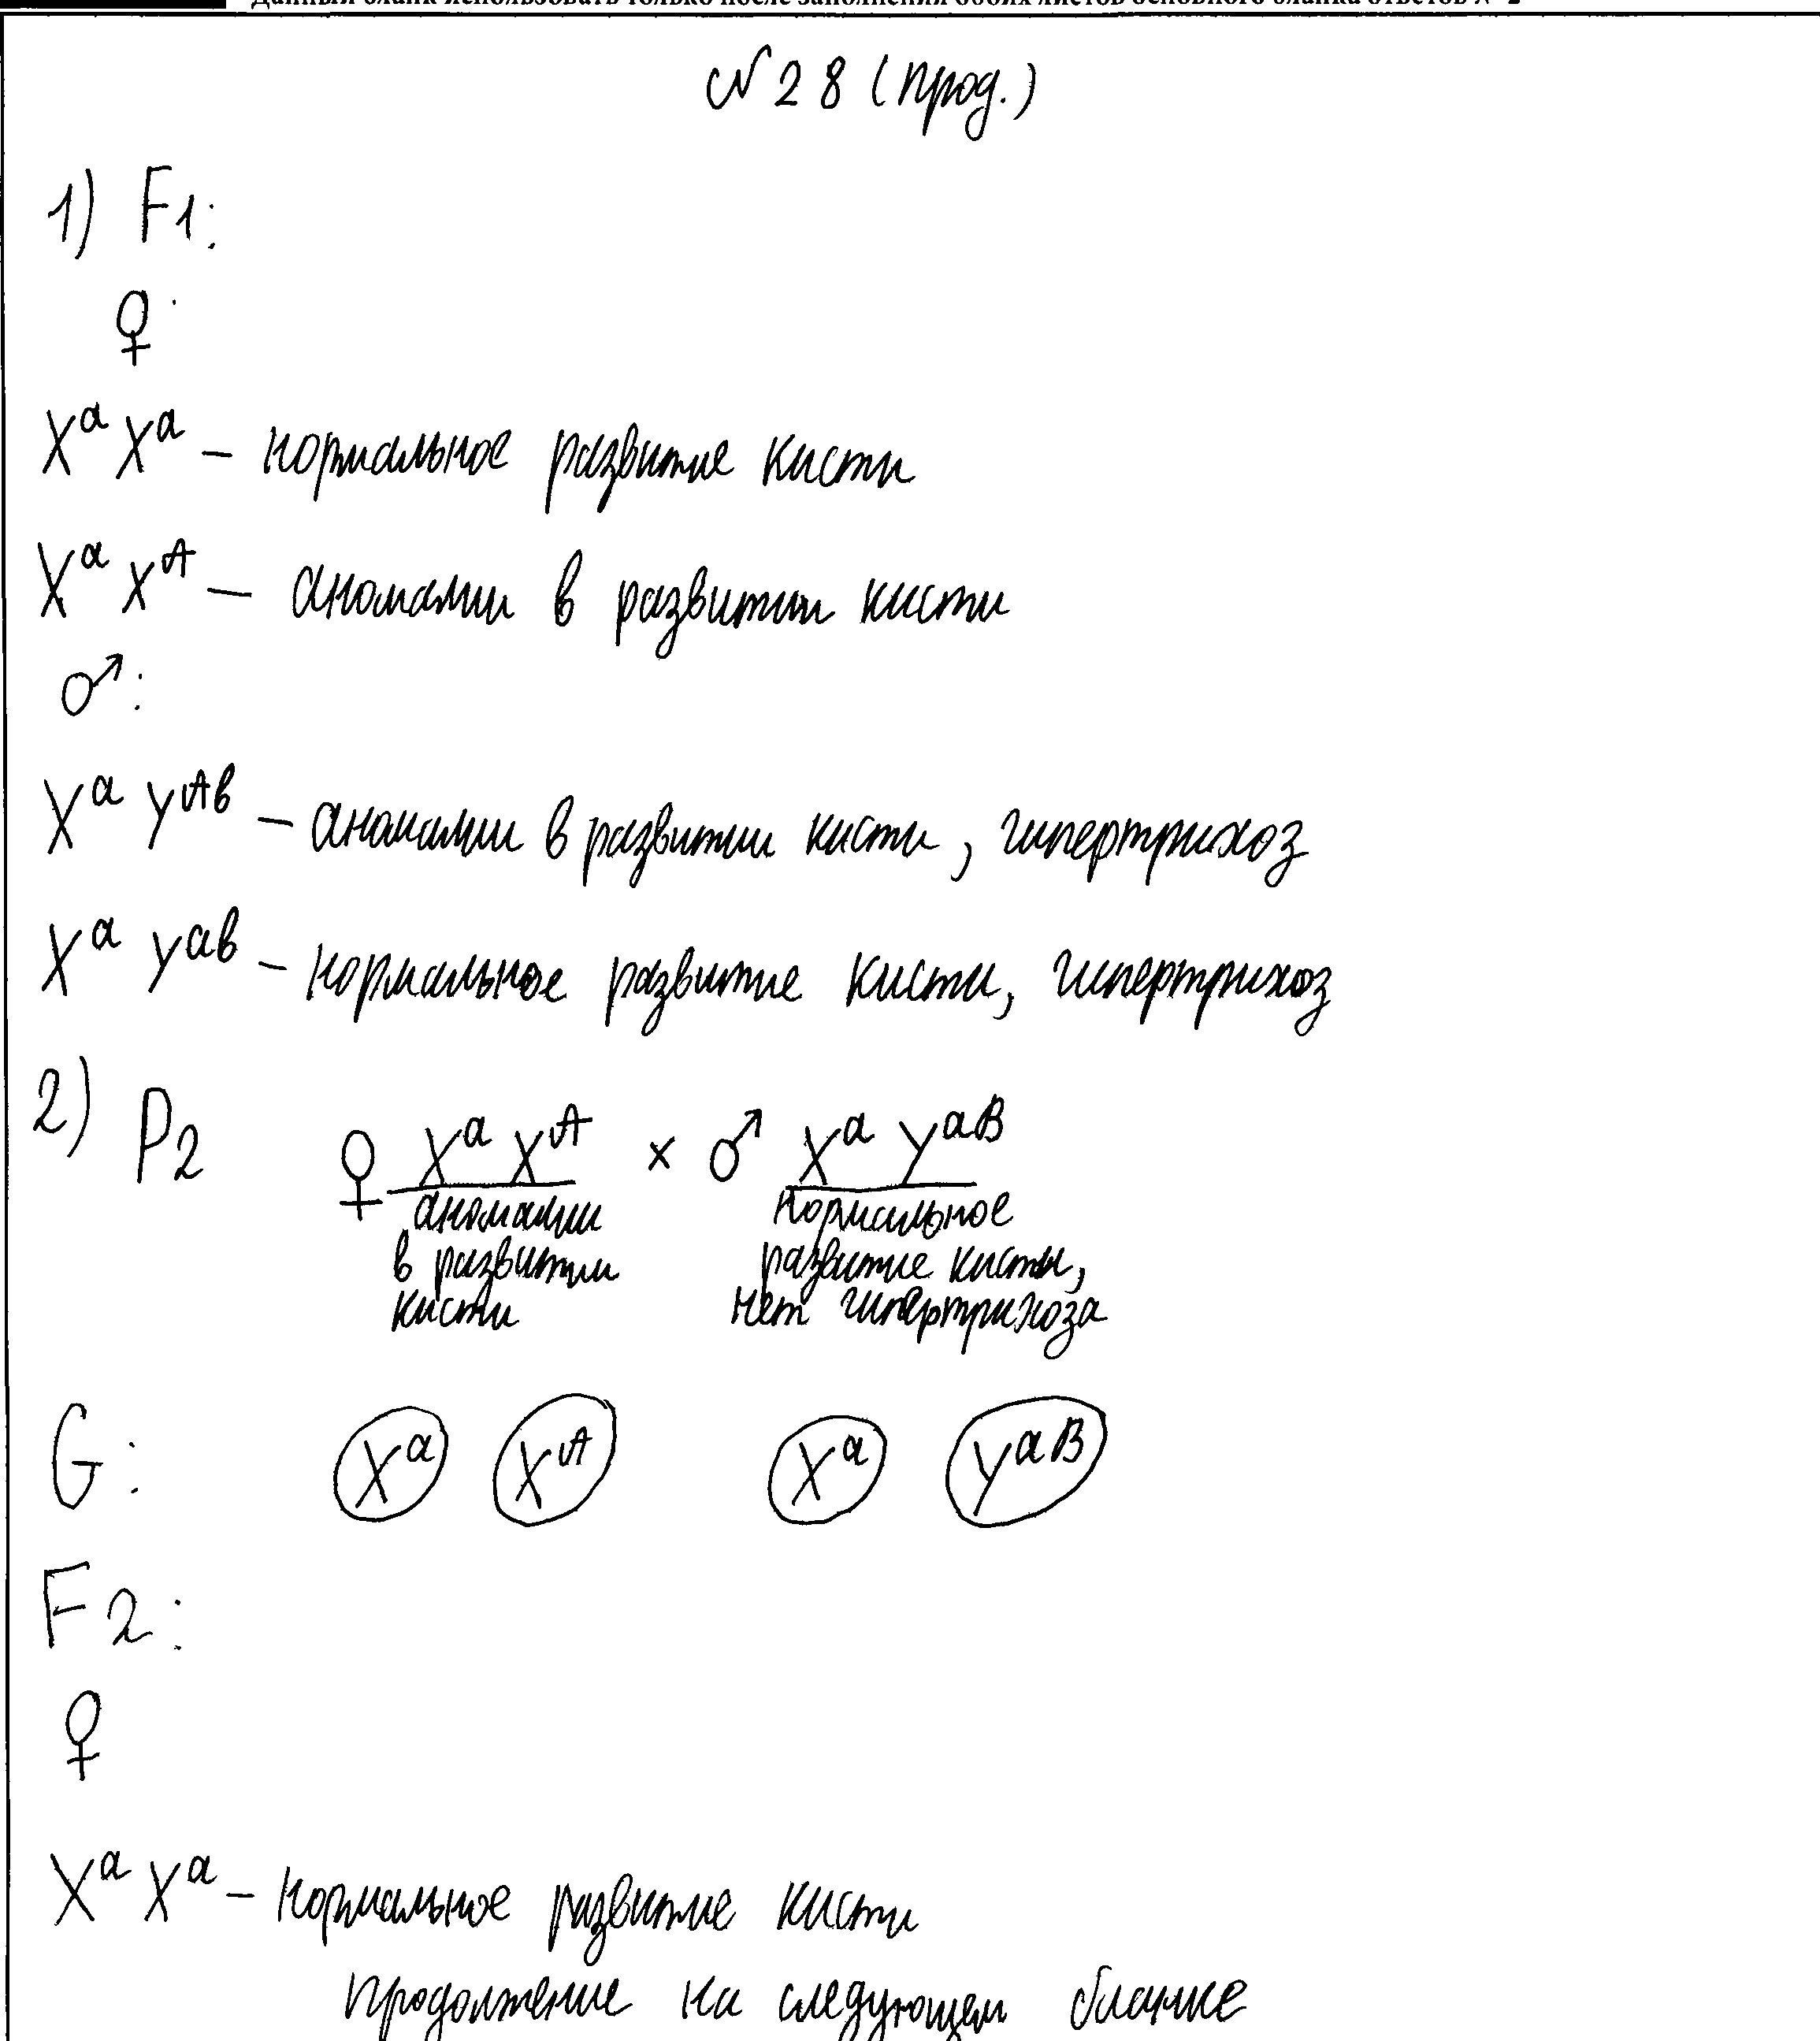 Данный бланк использовать только после заполнения обоих листов основного бланка ответов № 2
№ 28 (прод.)
1) F1:
♀:
Xᵃ Xᵃ – нормальное развитие кисти
Xᵃ Xᴬ – аномалии в развитии кисти
♂:
Xᵃ Yᴬᵇ – аномалии в развитии кисти, гипертрихоз
Xᵃ Yᵃᵇ – нормальное развитие кисти, гипертрихоз
2) P2 ♀ Xᵃ Xᴬ × ♂ Xᵃ Yᵃᴮ
аномалии нормальное
в развитии развитие кисти,
кисти нет гипертрихоза
G: Xᵃ Xᴬ Xᵃ Yᵃᴮ
F2:
♀
Xᵃ Xᵃ – нормальное развитие кисти
продолжение на следующем бланке